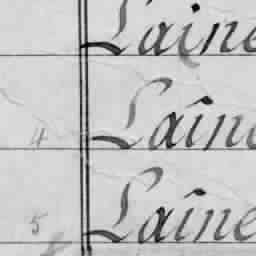 Laine
4 Laîne
5 Laîne